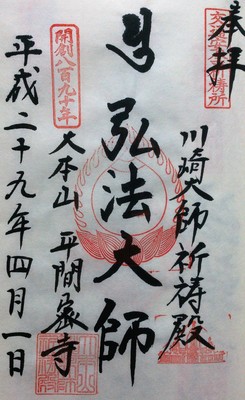 奉拝
川﨑大師祈祷殿
弘法大師
開創八百九十年
大本山 平間寺
平成二十九年四月一日